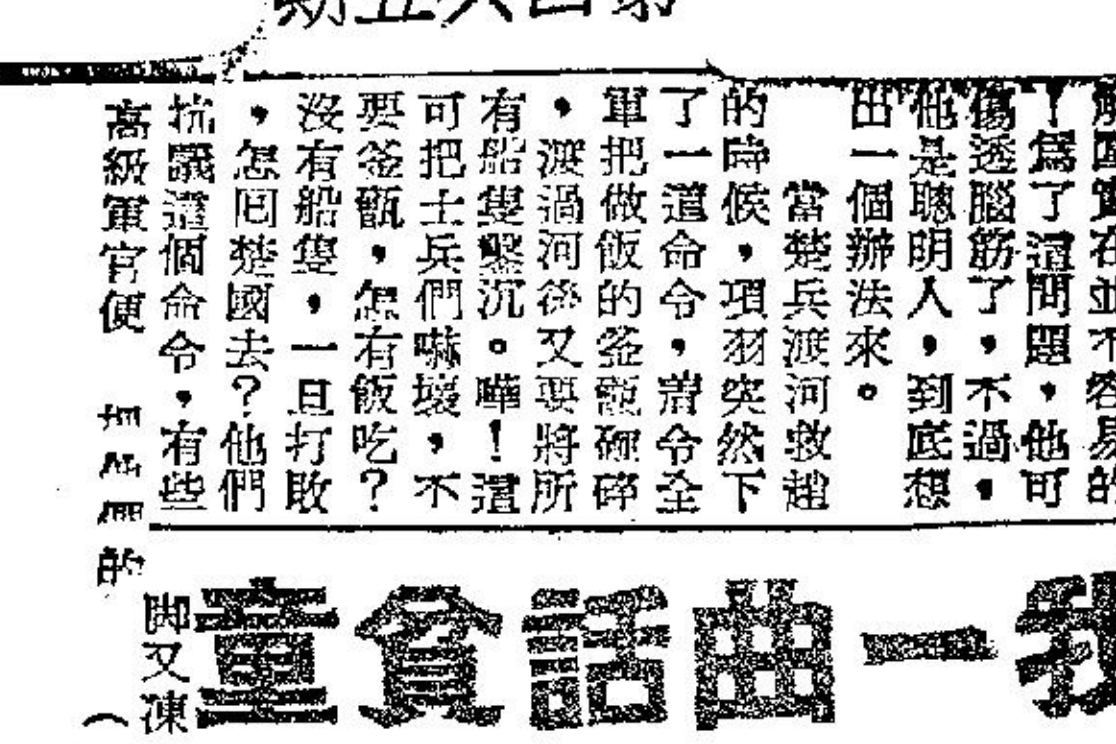 第四六五期
解困實在並不容易的
了爲了這問題，他可
傷透腦筋了，不過，
他是聰明人，到底想
出一個辦法來。
當楚兵渡河救趙
的時候，項羽突然下
了一道命令，着令全
軍把做飯的釜甑砸碎
，渡過河後又要將所
有船隻鑿沉。嘩！這
可把士兵們嚇壞，不
要釜甑，怎有飯吃？
沒有船隻，一旦打敗
，怎囘楚國去？他們
抗議這個命令，有些
高級軍官便
的
我一曲話貧童
脚又凍
（